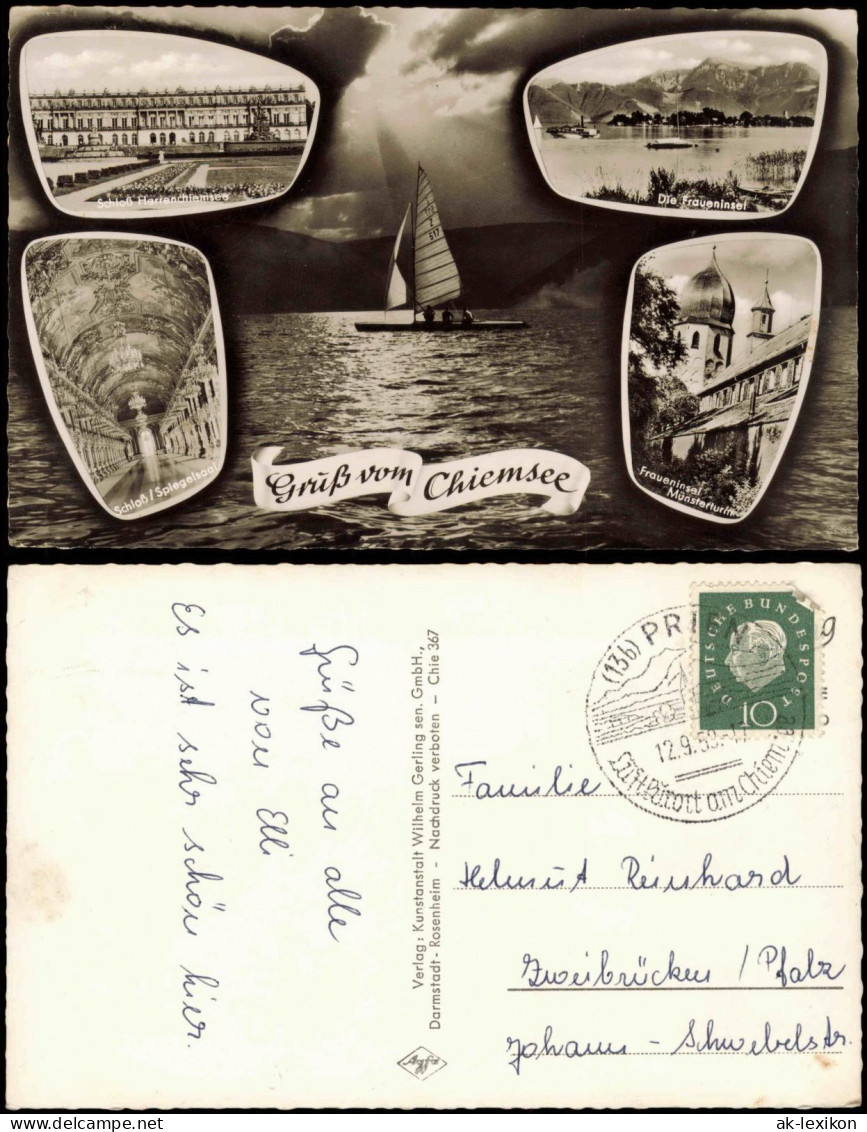 Schloß Herrenchiemsee
Die Fraueninsel
Z
517
Schloß/Spiegelsaal
Fraueninsel
Münsterturm
Gruß vom Chiemsee
Es ist sehr schön hier.
Grüße an alle
von Elli
Verlag: Kunstanstalt Wilhelm Gerling sen. GmbH.,
Darmstadt - Rosenheim - Nachdruck verboten - Chie 367
Agfa
(13b) PRIEN
12.9.
Luftkurort am Chiem
DEUTSCHE BUNDESPOST
10
Familie
Helmut Reinhard
Zweibrücken / Pfalz
Johann - Schwebelstr.
ak-lexikon